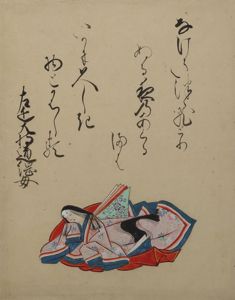 なけきつゝひとり
ぬる夜のあくる
まは
いかに久しき
物とかはしる
大将道綱母